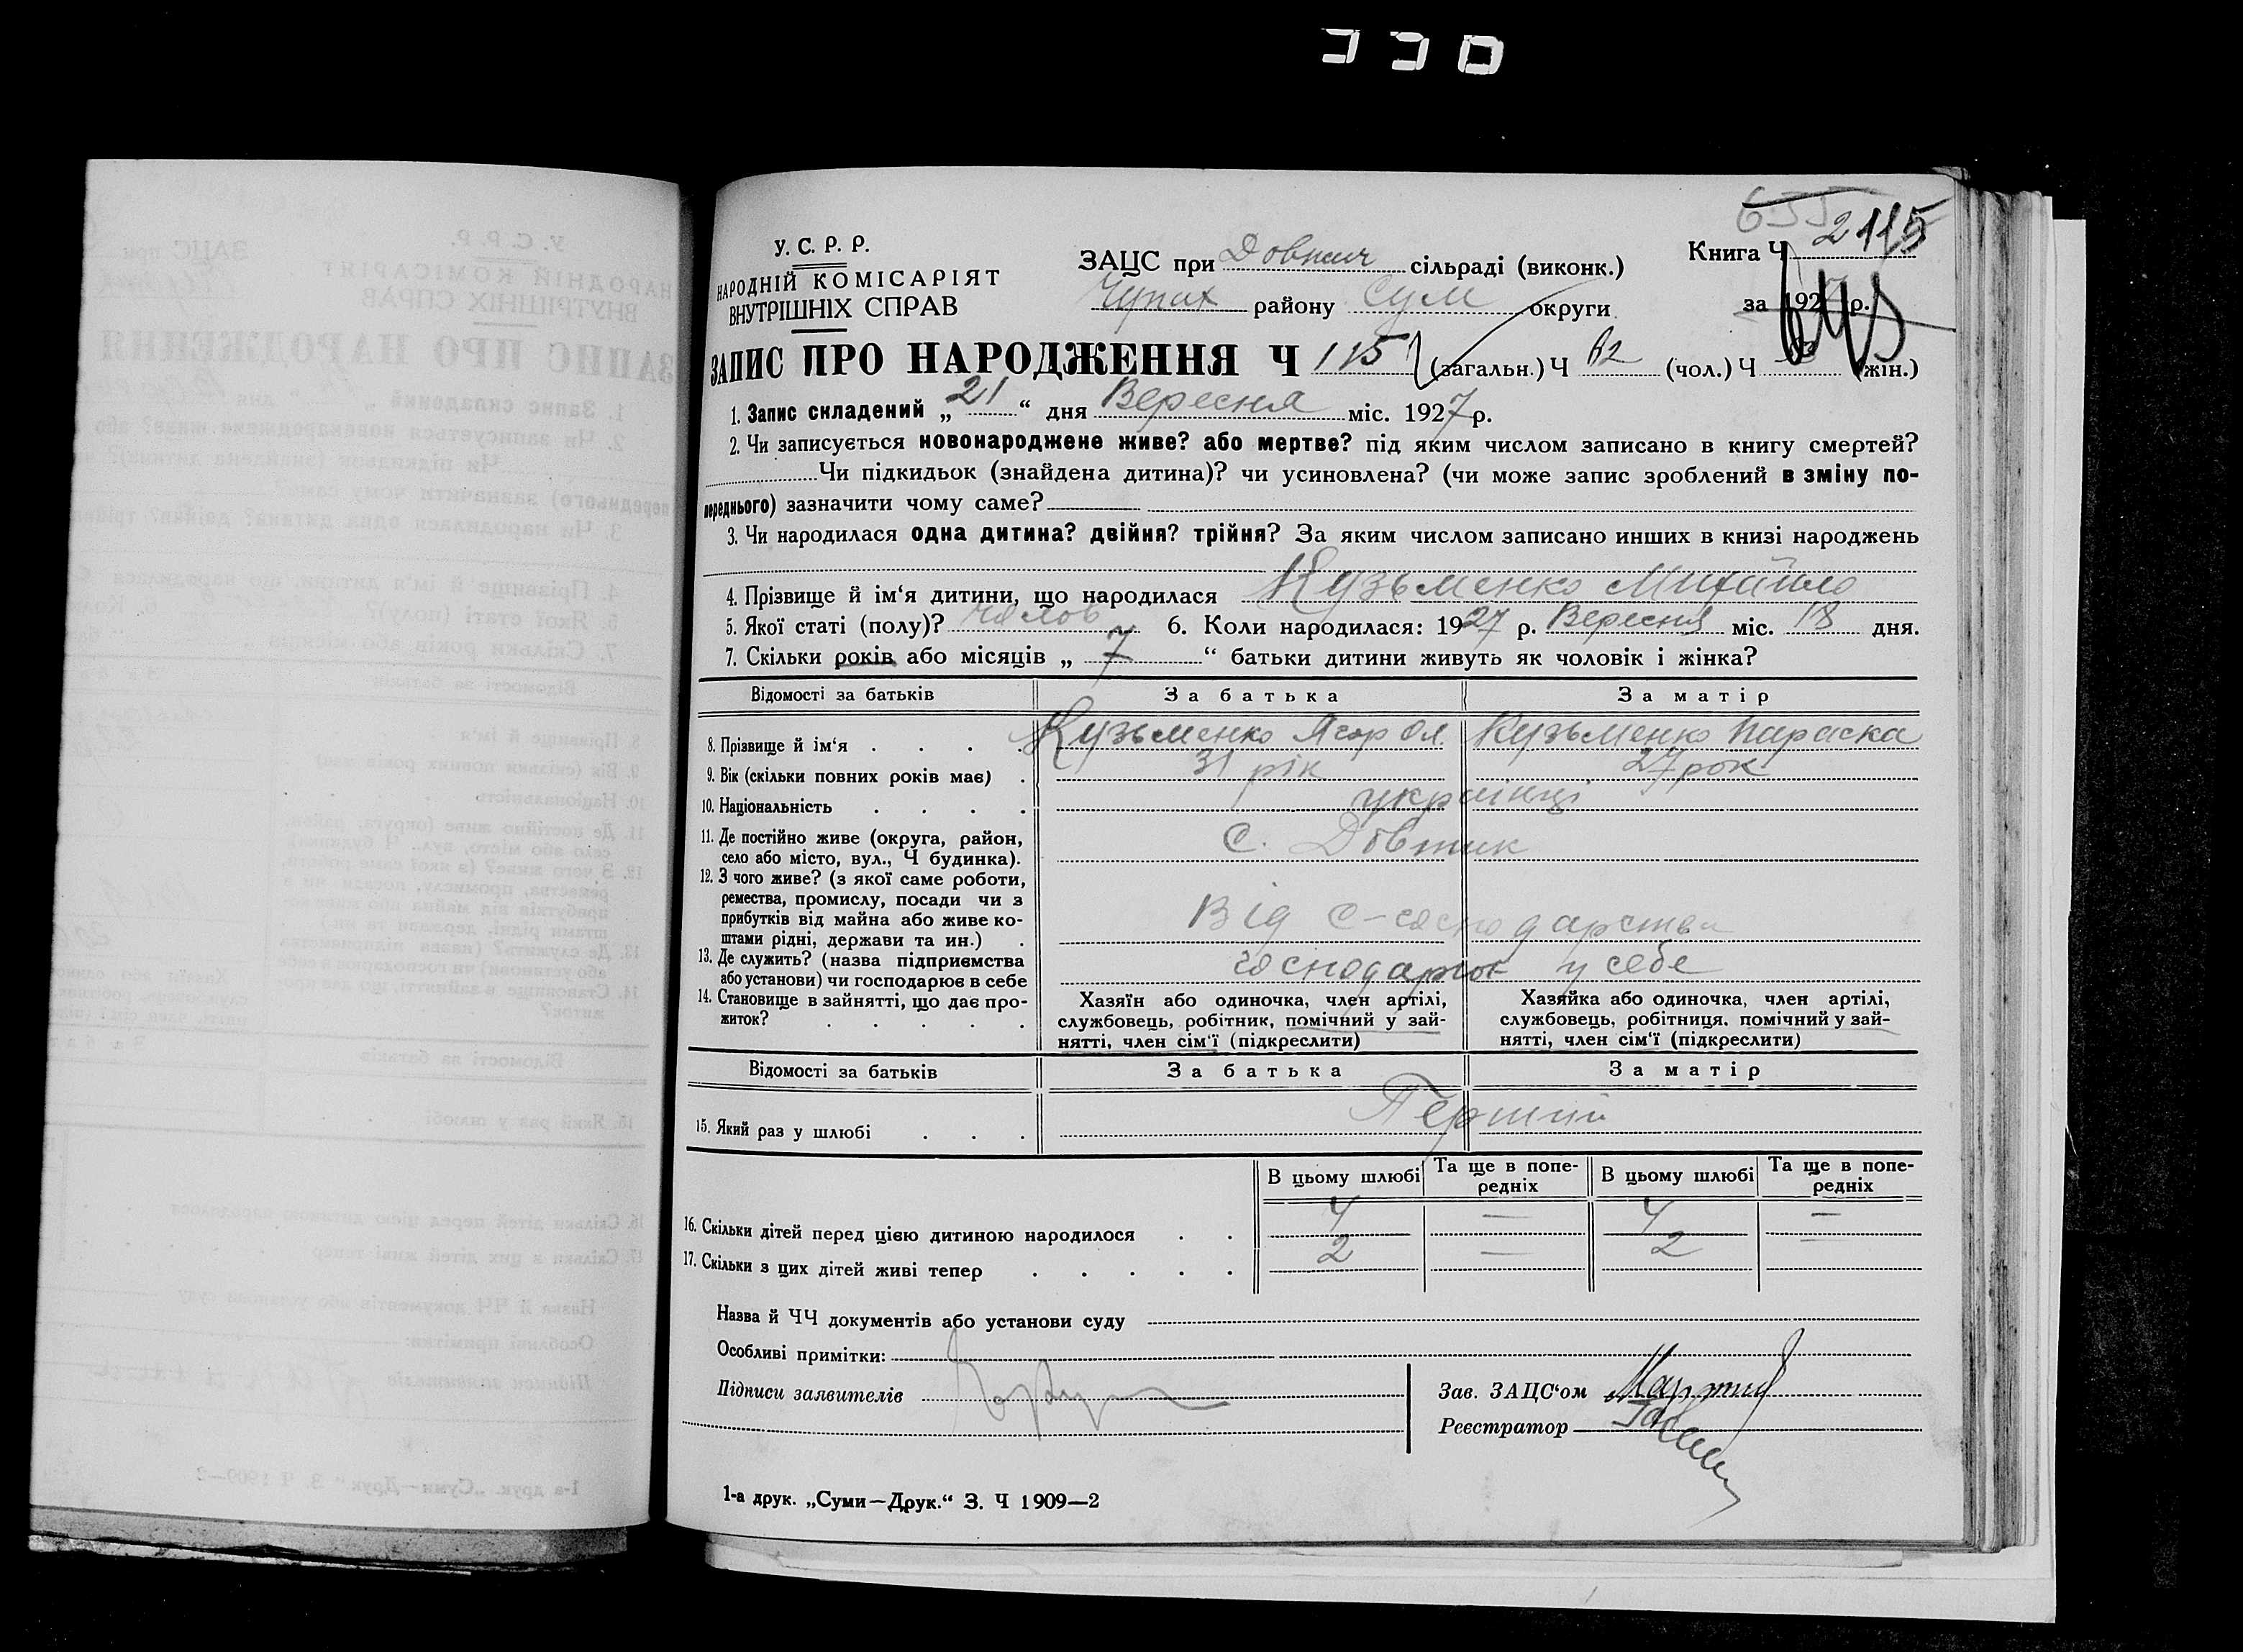 У. С. Р. Р.
НАРОДНІЙ КОМІСАРІЯТ
ВНУТРІШНІХ СПРАВ
ЗАЦС при сільраді (виконк.)
Чупах району Сум округи
Книга Ч 2115
за 1927 р.
ЗАПИС ПРО НАРОДЖЕННЯ Ч 115 (загальн.) Ч 62 (чол.) Ч (жін.)
1. Запис складений „ 21 “ дня Вересня міс. 1927 р.
2. Чи записується новонароджене живе? або мертве? під яким числом записано в книгу смертей?
Чи підкидьок (знайдена дитина)? чи усиновлена? (чи може запис зроблений в зміну по-
переднього) зазначити чому саме?
3. Чи народилася одна дитина? двійня? трійня? За яким числом записано инших в книзі народжень
4. Прізвище й ім‘я дитини, що народилася Кузьменко Михайло
5. Якої статі (полу)? чолов 6. Коли народилася: 1927 р. Вересня міс. 18 дня.
7. Скільки років або місяців „ 7 “ батьки дитини живуть як чоловік і жінка?
Відомості за батьків За батька За матір
8. Прізвище й ім‘я . . . . Кузьменко Ягор Ол. Кузьменко Параска
9. Вік (скільки повних років має) . 31 рік 27 рок
10. Національність . . . . українці
11. Де постійно живе (округа, район,
село або місто, вул., Ч будинка). С. Довжик
12. З чого живе? (з якої саме роботи,
ремества, промислу, посади чи з
прибутків від майна або живе ко-
штами рідні, держави та ин.) . Від с-господарства
13. Де служить? (назва підприємства
або установи) чи господарює в себе господарює у себе
14. Становище в зайнятті, що дає про-
житок? . . . . .
Хазяїн або одиночка, член артілі,
службовець, робітник, помічний у зай-
нятті, член сім‘ї (підкреслити)
Хазяйка або одиночка, член артілі,
службовець, робітниця, помічний у зай-
нятті, член сім‘ї (підкреслити)
Відомості за батьків За батька За матір
15. Який раз у шлюбі . . . Перший
В цьому шлюбі Та ще в попе-
редніх В цьому шлюбі Та ще в попе-
редніх
16. Скільки дітей перед цією дитиною народилося . . 4 — 4 —
17. Скільки з цих дітей живі тепер . . . . . 2 — 2 —
Назва й ЧЧ документів або установи суду
Особливі примітки:
Підписи заявителів
Зав. ЗАЦС‘ом
Реєстратор
1-а друк. „Суми—Друк.“ З. Ч 1909—2